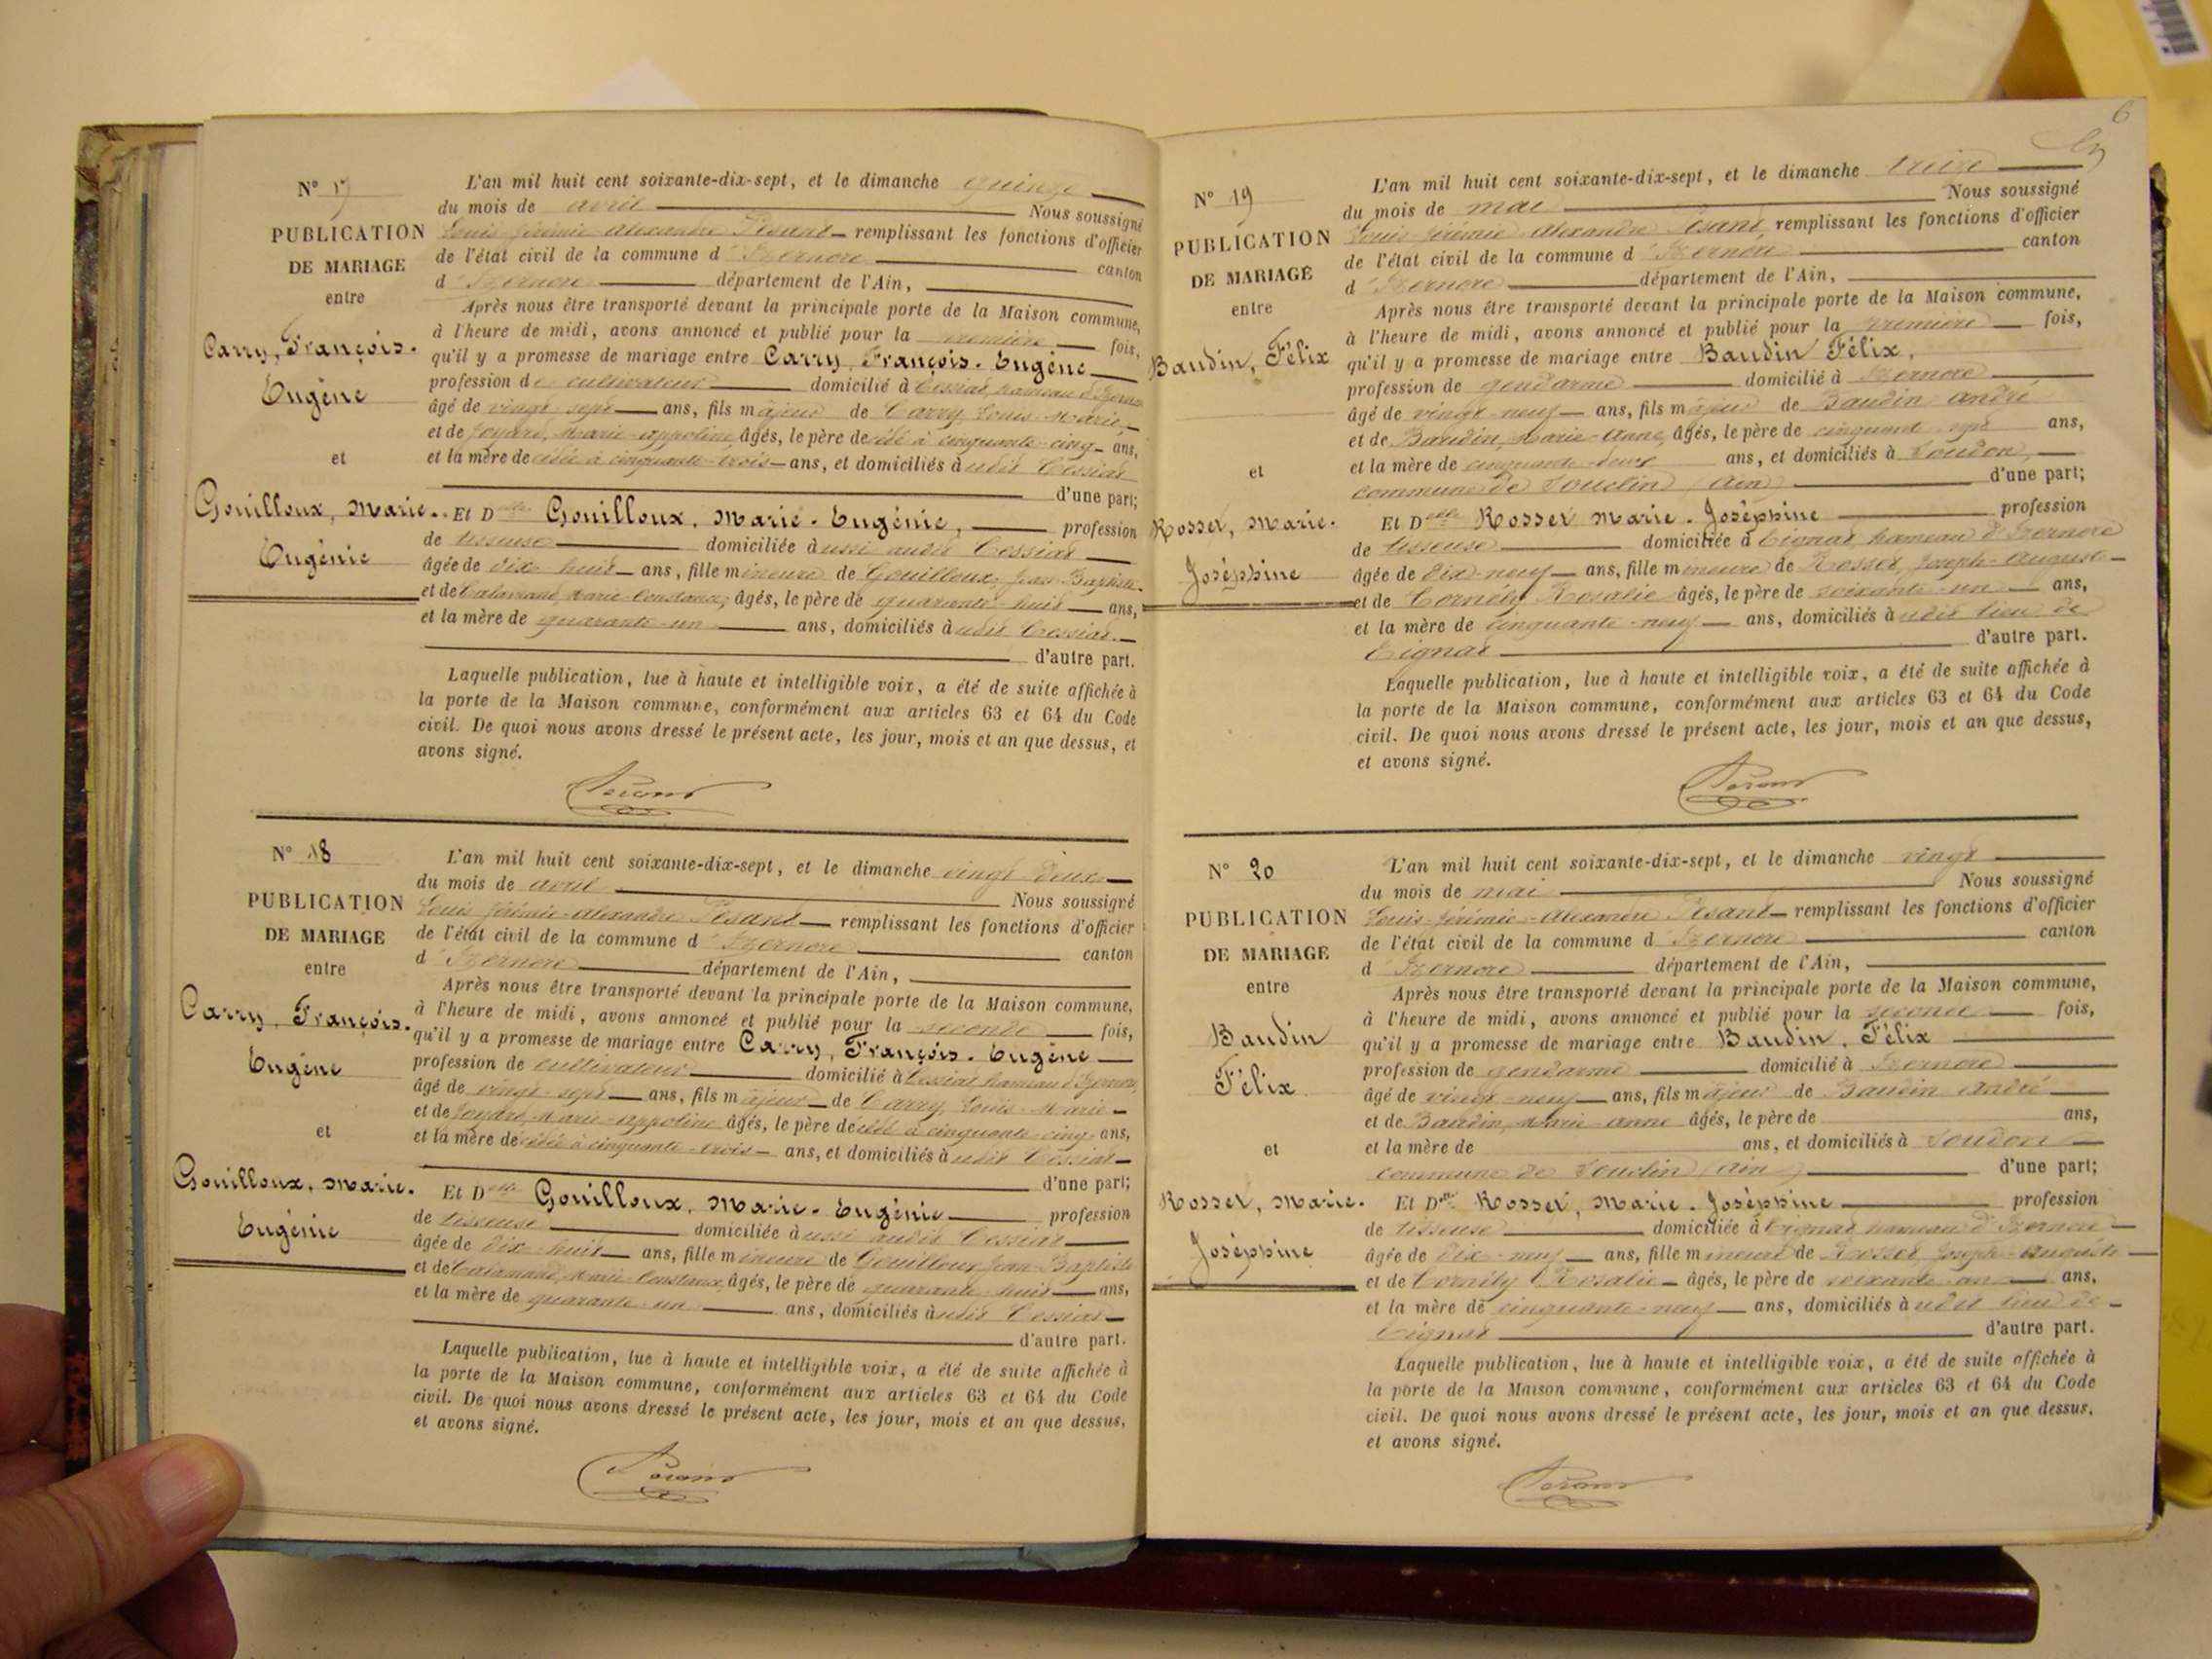 N° 17
PUBLICATION
DE MARIAGE
entre
Carry, François-
Eugène
et
Gouilloux, Marie-
Eugénie
L'an mil huit cent soixante-dix-sept, et le dimanche quinze
du mois de avril Nous soussigné
Louis Jérémie Alexandre remplissant les fonctions d'officier
de l'état civil de la commune d'Izernore canton
d'Izernore département de l'Ain,
Après nous être transporté devant la principale porte de la Maison commune,
à l'heure de midi, avons annoncé et publié pour la première fois,
qu'il y a promesse de mariage entre Carry, François-Eugène
profession de cultivateur domicilié à Cessiat, hameau d'Izernore
âgé de vingt-sept ans, fils majeur de Carry, Louis-Marie,
et de Joyard, Marie-appoline, âgés, le père décédé à cinquante-cinq ans,
et la mère décédée à cinquante-trois ans, et domiciliés à udit Cessiat
d'une part;
Et Delle Gouilloux, Marie-Eugénie, profession
de tisseuse domiciliée à ussi audit Cessiat
âgée de dix-huit ans, fille mineure de Gouilloux, Jean-Baptiste
et de Marie-Constance, âgés, le père de quarante-huit ans,
et la mère de quarante-un ans, domiciliés à udit Cessiat
d'autre part.
Laquelle publication, lue à haute et intelligible voix, a été de suite affichée à
la porte de la Maison commune, conformément aux articles 63 et 64 du Code
civil. De quoi nous avons dressé le présent acte, les jour, mois et an que dessus, et
avons signé.
N° 18
PUBLICATION
DE MARIAGE
entre
Carry, François-
Eugène
et
Gouilloux, Marie-
Eugénie
L'an mil huit cent soixante-dix-sept, et le dimanche vingt-deux
du mois de avril Nous soussigné
Louis Jérémie-Alexandre remplissant les fonctions d'officier
de l'état civil de la commune d'Izernore canton
d'Izernore département de l'Ain,
Après nous être transporté devant la principale porte de la Maison commune,
à l'heure de midi, avons annoncé et publié pour la seconde fois,
qu'il y a promesse de mariage entre Carry, François-Eugène
profession de cultivateur domicilié à Cessiat hameau d'Izernore,
âgé de vingt-sept ans, fils majeur de Carry, Louis-Marie
et de Joyard, Marie-appoline âgés, le père décédé à cinquante-cinq ans,
et la mère décédée à cinquante-trois ans, et domiciliés à udit Cessiat
d'une part;
Et Delle Gouilloux, Marie-Eugénie profession
de tisseuse domiciliée à ussi audit Cessiat
âgée de dix-huit ans, fille mineure de Gouilloux Jean-Baptiste
et de Marie-Constance, âgés, le père de quarante-huit ans,
et la mère de quarante-un ans, domiciliés à udit Cessiat
d'autre part.
Laquelle publication, lue à haute et intelligible voix, a été de suite affichée à
la porte de la Maison commune, conformément aux articles 63 et 64 du Code
civil. De quoi nous avons dressé le présent acte, les jour, mois et an que dessus,
et avons signé.
6
N° 19
PUBLICATION
DE MARIAGE
entre
Baudin, Félix
et
Rosset, Marie-
Joséphine
L'an mil huit cent soixante-dix-sept, et le dimanche treize
du mois de mai Nous soussigné
Louis-Jérémie Alexandre remplissant les fonctions d'officier
de l'état civil de la commune d'Izernore canton
d'Izernore département de l'Ain,
Après nous être transporté devant la principale porte de la Maison commune,
à l'heure de midi, avons annoncé et publié pour la première fois,
qu'il y a promesse de mariage entre Baudin Félix,
profession de gendarme domicilié à Izernore
âgé de vingt-neuf ans, fils majeur de Baudin andré
et de Baudin, Marie-Anne, âgés, le père de cinquante-sept ans,
et la mère de cinquante-deux ans, et domiciliés à Soudon,
commune de Souclin (Ain) d'une part;
Et Delle Rosset Marie-Joséphine profession
de tisseuse domiciliée à Tignat, hameau d'Izernore
âgée de dix-neuf ans, fille mineure de Rosset, Joseph-auguste
et de Cornély Rosalie âgés, le père de soixante-un ans,
et la mère de cinquante-neuf ans, domiciliés à udit lieu de
Tignat d'autre part.
Laquelle publication, lue à haute et intelligible voix, a été de suite affichée à
la porte de la Maison commune, conformément aux articles 63 et 64 du Code
civil. De quoi nous avons dressé le présent acte, les jour, mois et an que dessus,
et avons signé.
N° 20
PUBLICATION
DE MARIAGE
entre
Baudin
Félix
et
Rosset, Marie-
Joséphine
L'an mil huit cent soixante-dix-sept, et le dimanche vingt
du mois de mai Nous soussigné
Louis-Jérémie-Alexandre remplissant les fonctions d'officier
de l'état civil de la commune d'Izernore canton
d'Izernore département de l'Ain,
Après nous être transporté devant la principale porte de la Maison commune,
à l'heure de midi, avons annoncé et publié pour la seconde fois,
qu'il y a promesse de mariage entre Baudin, Félix
profession de gendarme domicilié à Izernore
âgé de vingt-neuf ans, fils majeur de Baudin André
et de Baudin, Marie-anne âgés, le père de ans,
et la mère de ans, et domiciliés à Soudon
commune de Souclin (Ain) d'une part;
Et Delle Rosset, Marie-Joséphine profession
de tisseuse domiciliée à Tignat hameau d'Izernore
âgée de dix-neuf ans, fille mineure de Rosset Joseph-Auguste
et de Cornély Rosalie âgés, le père de soixante-un ans,
et la mère de cinquante-neuf ans, domiciliés à udit lieu de
Tignat d'autre part.
Laquelle publication, lue à haute et intelligible voix, a été de suite affichée à
la porte de la Maison commune, conformément aux articles 63 et 64 du Code
civil. De quoi nous avons dressé le présent acte, les jour, mois et an que dessus,
et avons signé.